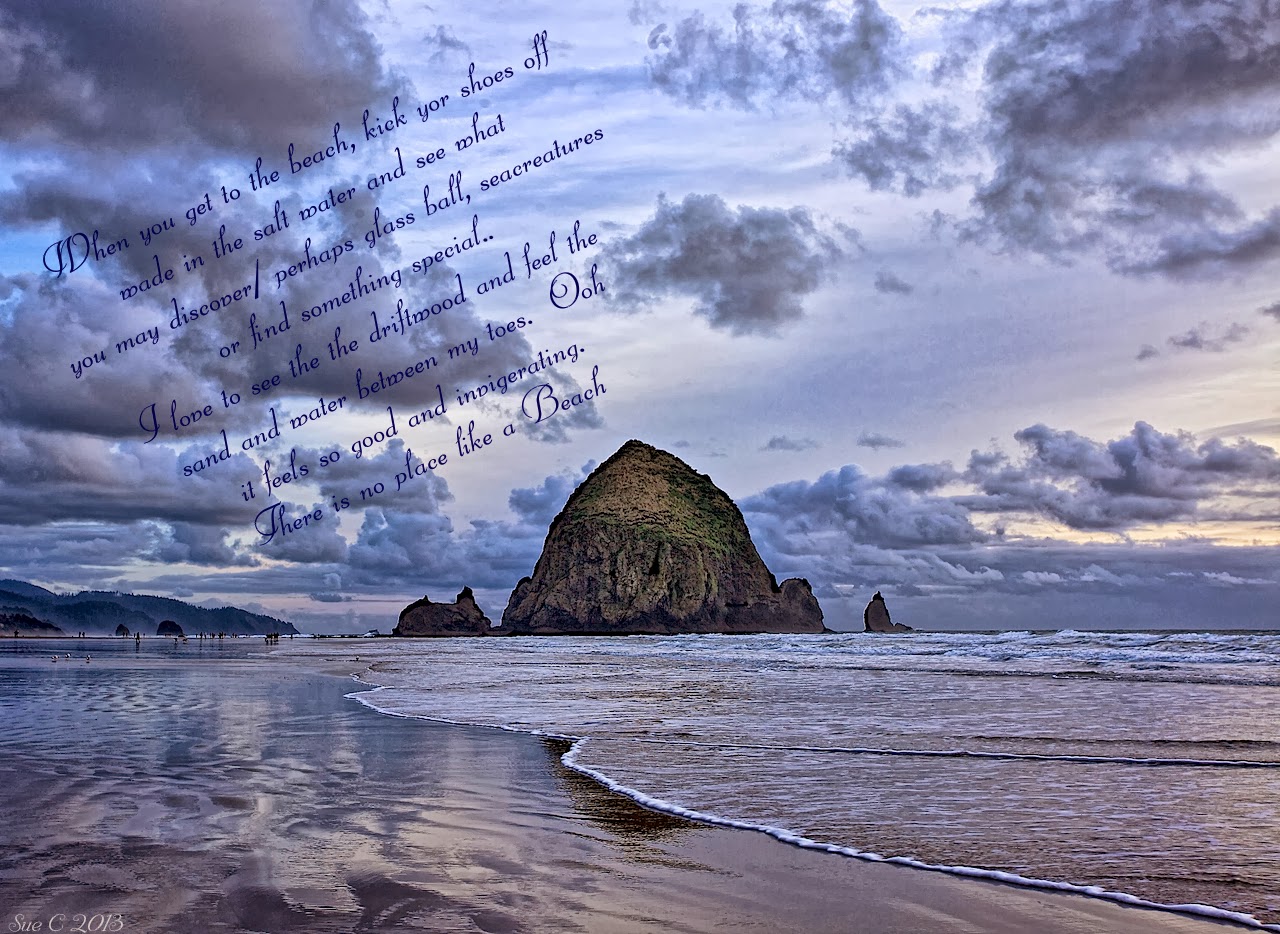 When you get to the beach, kick yor shoes off
wade in the salt water and see what
you may discover/ perhaps glass ball, seacreatures
or find something special..
I love to see the the driftwood and feel the
sand and water between my toes. Ooh
it feels so good and invigerating.
There is no place like a Beach
Sue C 2013